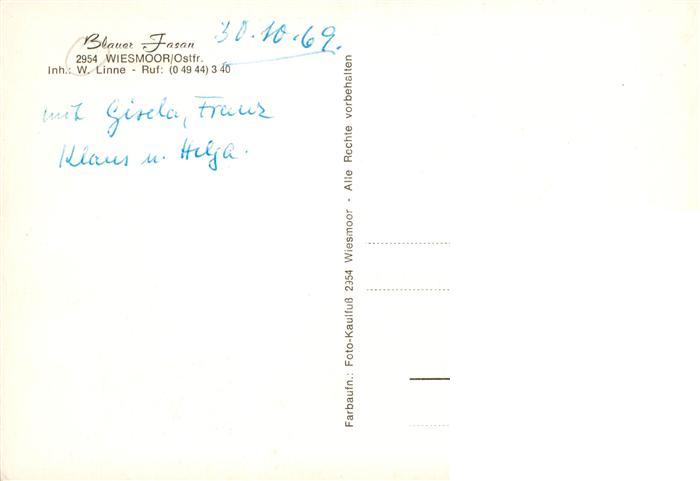 Blauer Fasan
30.10.69.
2954 WIESMOOR/Ostfr.
Inh.: W. Linne - Ruf: (0 49 44) 3 40
mit Gisela, Franz
Klaus u. Helga.
Farbaufn.: Foto-Kaulfuß 2954 Wiesmoor - Alle Rechte vorbehalten